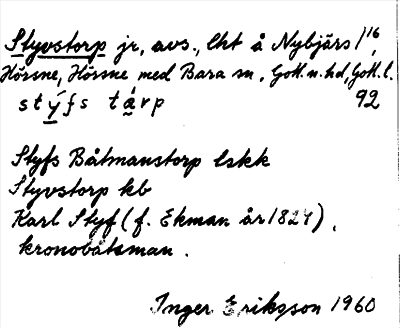 Styvstorp jr, avs., lht å Nybjärs 1/16,
Hörsne, Hörsne med Bara sn, Gotl. n. hd, Gotl. l.
stýfs tárp 92
Styfs Båtmanstorp lskk
Styvstorp kb
Karl Styf (f. Ekman år 1824),
kronobåtsman.
Inger Eriksson 1960